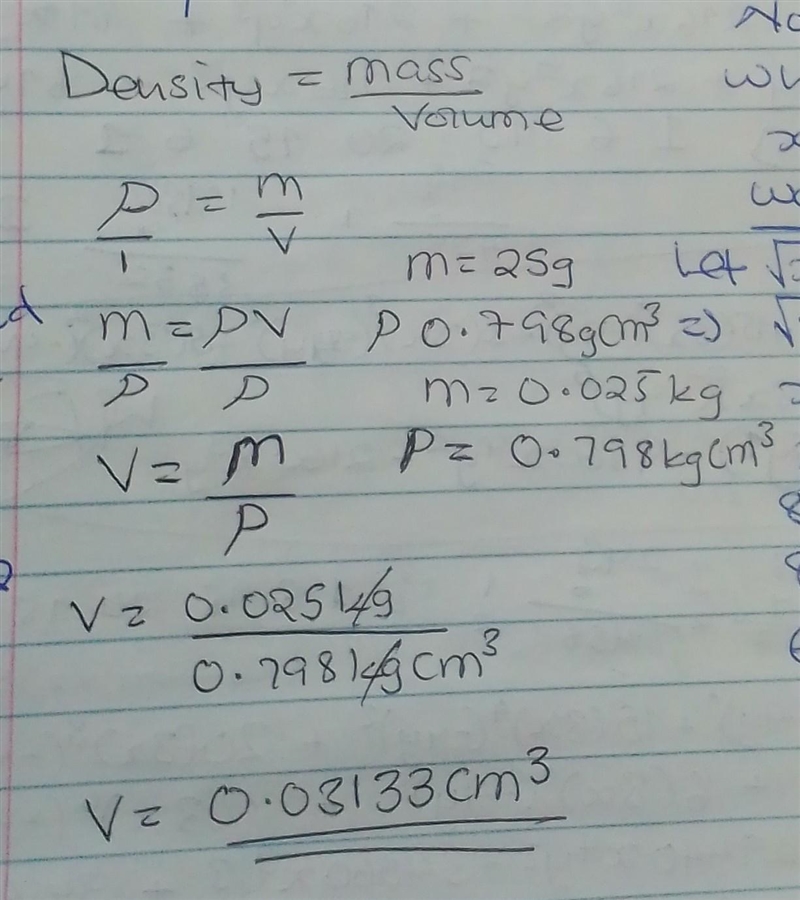 Density = mass
Volume
ρ = m
1 V
m = 25g Let √
m = ρV ρ 0.798gcm³ => √
ρ ρ m = 0.025kg =
V = m ρ = 0.798kgcm³
ρ
V = 0.025kg
0.798kgcm³
V = 0.03133cm³